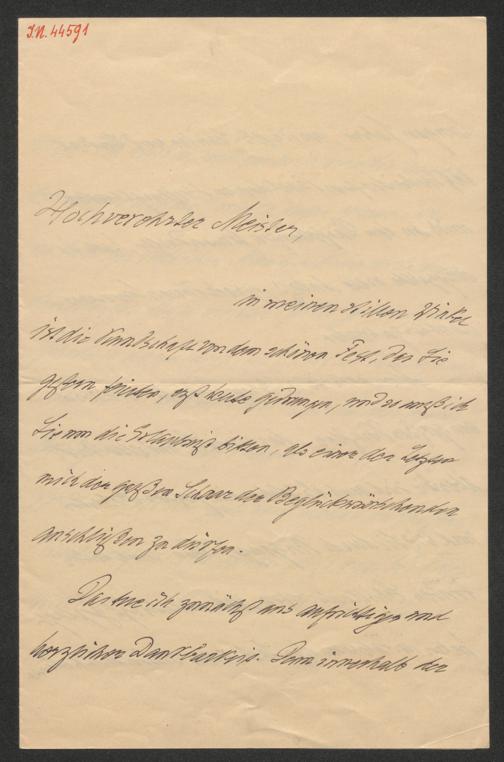 I.N. 44591
Hochverehrter Meister,
in meinen stillen Winkel
ist die Kundschaft von dem schönen Fest, das Sie
gestern feierten, erst heute gedrungen, und so muß ich
Sie um die Erlaubnis bitten, als einer der Letzten
mich der großen Schaar der Beglückwünschenden
anschließen zu dürfen.
Das tue ich zunächst aus aufrichtiger und
herzlicher Dankbarkeit. Denn innerhalb der